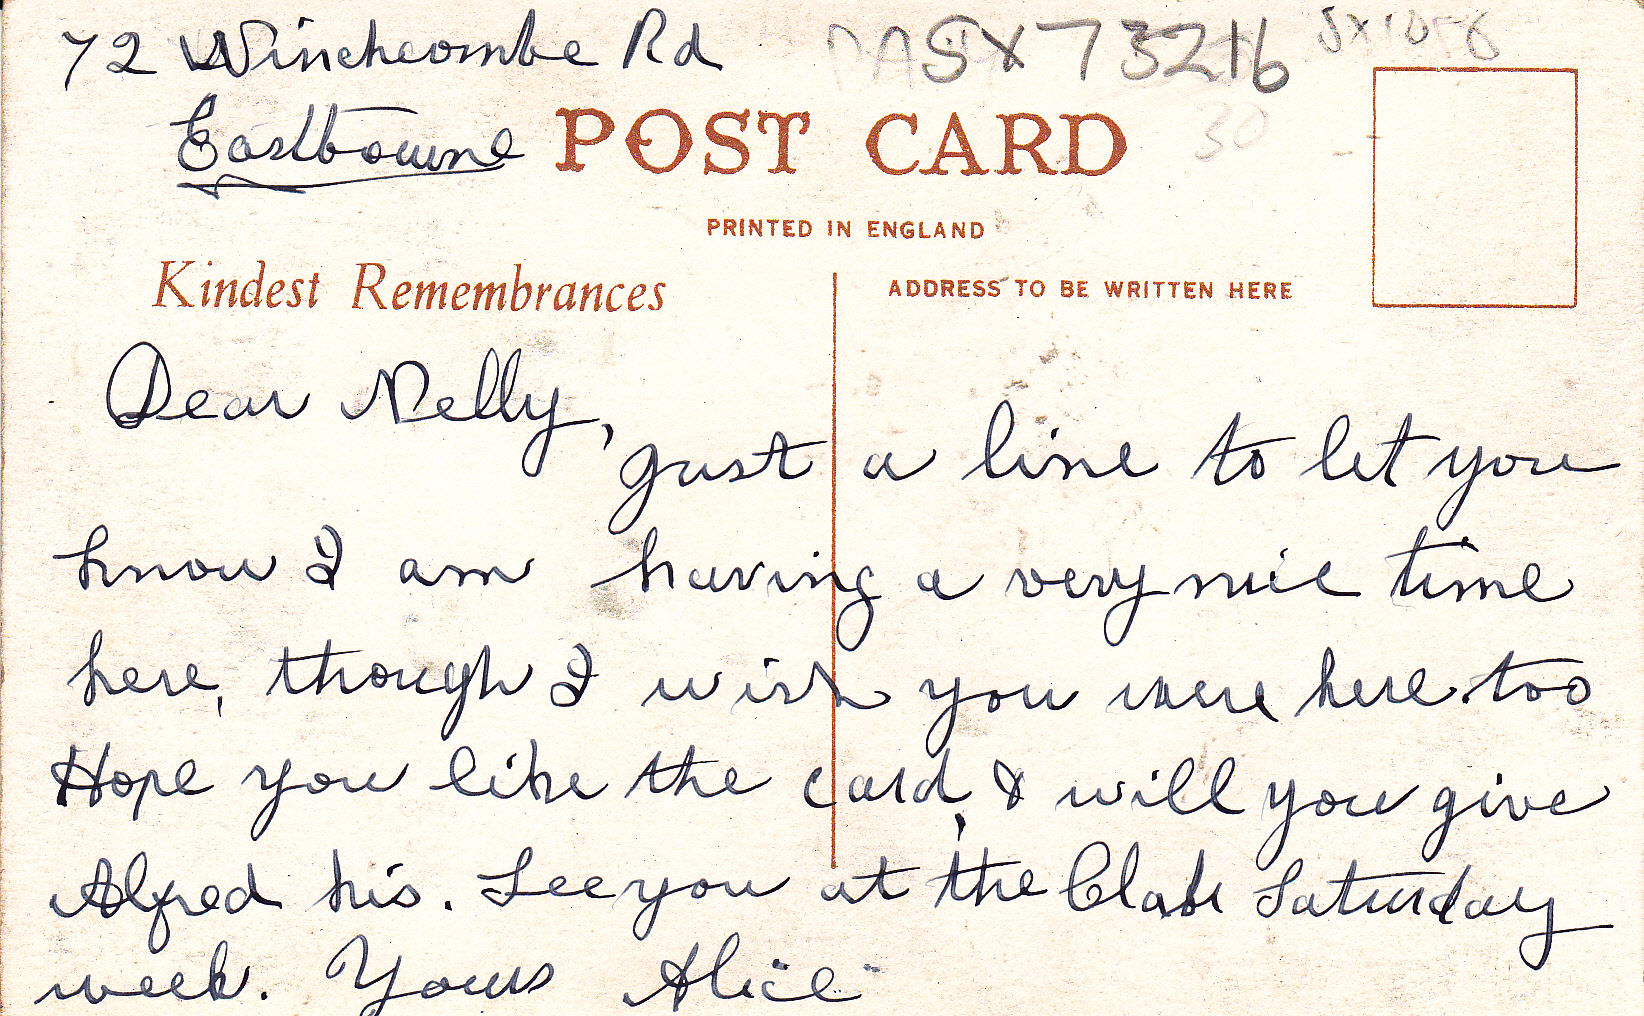 72 Winchcombe Rd
Eastbourne
SX 73216
30
POST CARD
PRINTED IN ENGLAND
Kindest Remembrances
ADDRESS TO BE WRITTEN HERE
Dear Nelly,
just a line to let you
know I am having a very nice time
here, though I wish you were here too
Hope you like the card, & will you give
Alfred his. See you at the Club Saturday
week. Yours Alice